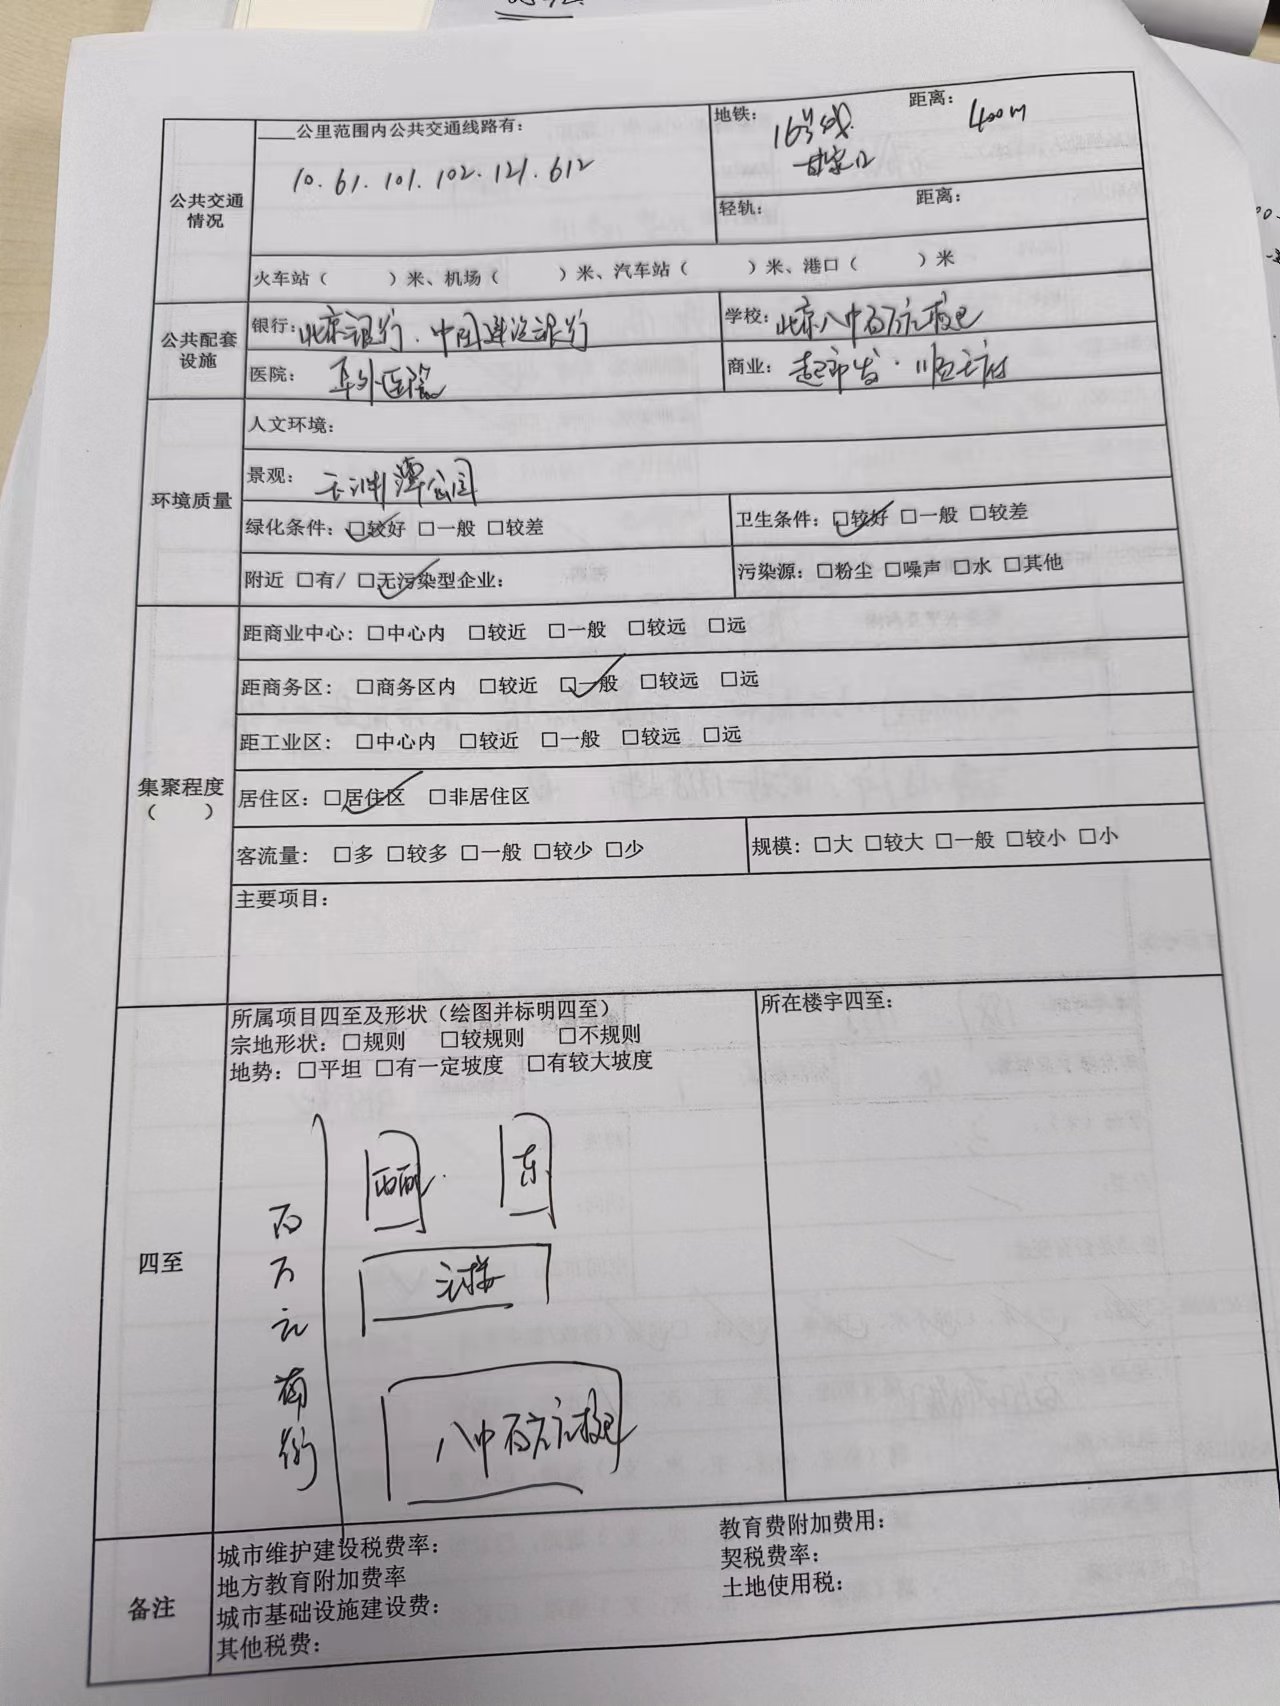 公共交通情况
____公里范围内公共交通线路有：
10. 61. 101. 102. 121. 612
地铁： 16号线 距离： 400m
甘家口
轻轨： 距离：
火车站（ ）米、机场（ ）米、汽车站（ ）米、港口（ ）米
公共配套设施
银行：北京银行. 中国建设银行
学校：北京八中百万庄校区
医院： 阜外医院
商业： 超市发. 顺天府
环境质量
人文环境：
景观： 玉渊潭公园
绿化条件：☑较好 □一般 □较差
卫生条件：☑较好 □一般 □较差
附近 □有/ ☑无污染型企业：
污染源：□粉尘 □噪声 □水 □其他
集聚程度
（ ）
距商业中心：□中心内 □较近 □一般 □较远 □远
距商务区： □商务区内 □较近 ☑一般 □较远 □远
距工业区： □中心内 □较近 □一般 □较远 □远
居住区：☑居住区 □非居住区
客流量： □多 □较多 □一般 □较少 □少
规模：□大 □较大 □一般 □较小 □小
主要项目：
四至
所属项目四至及形状（绘图并标明四至）
宗地形状：□规则 □较规则 □不规则
地势：□平坦 □有一定坡度 □有较大坡度
所在楼宇四至：
东
百万庄南街
八中百万庄校区
备注
城市维护建设税费率：
地方教育附加费率
城市基础设施建设费：
其他税费：
教育费附加费用：
契税费率：
土地使用税：